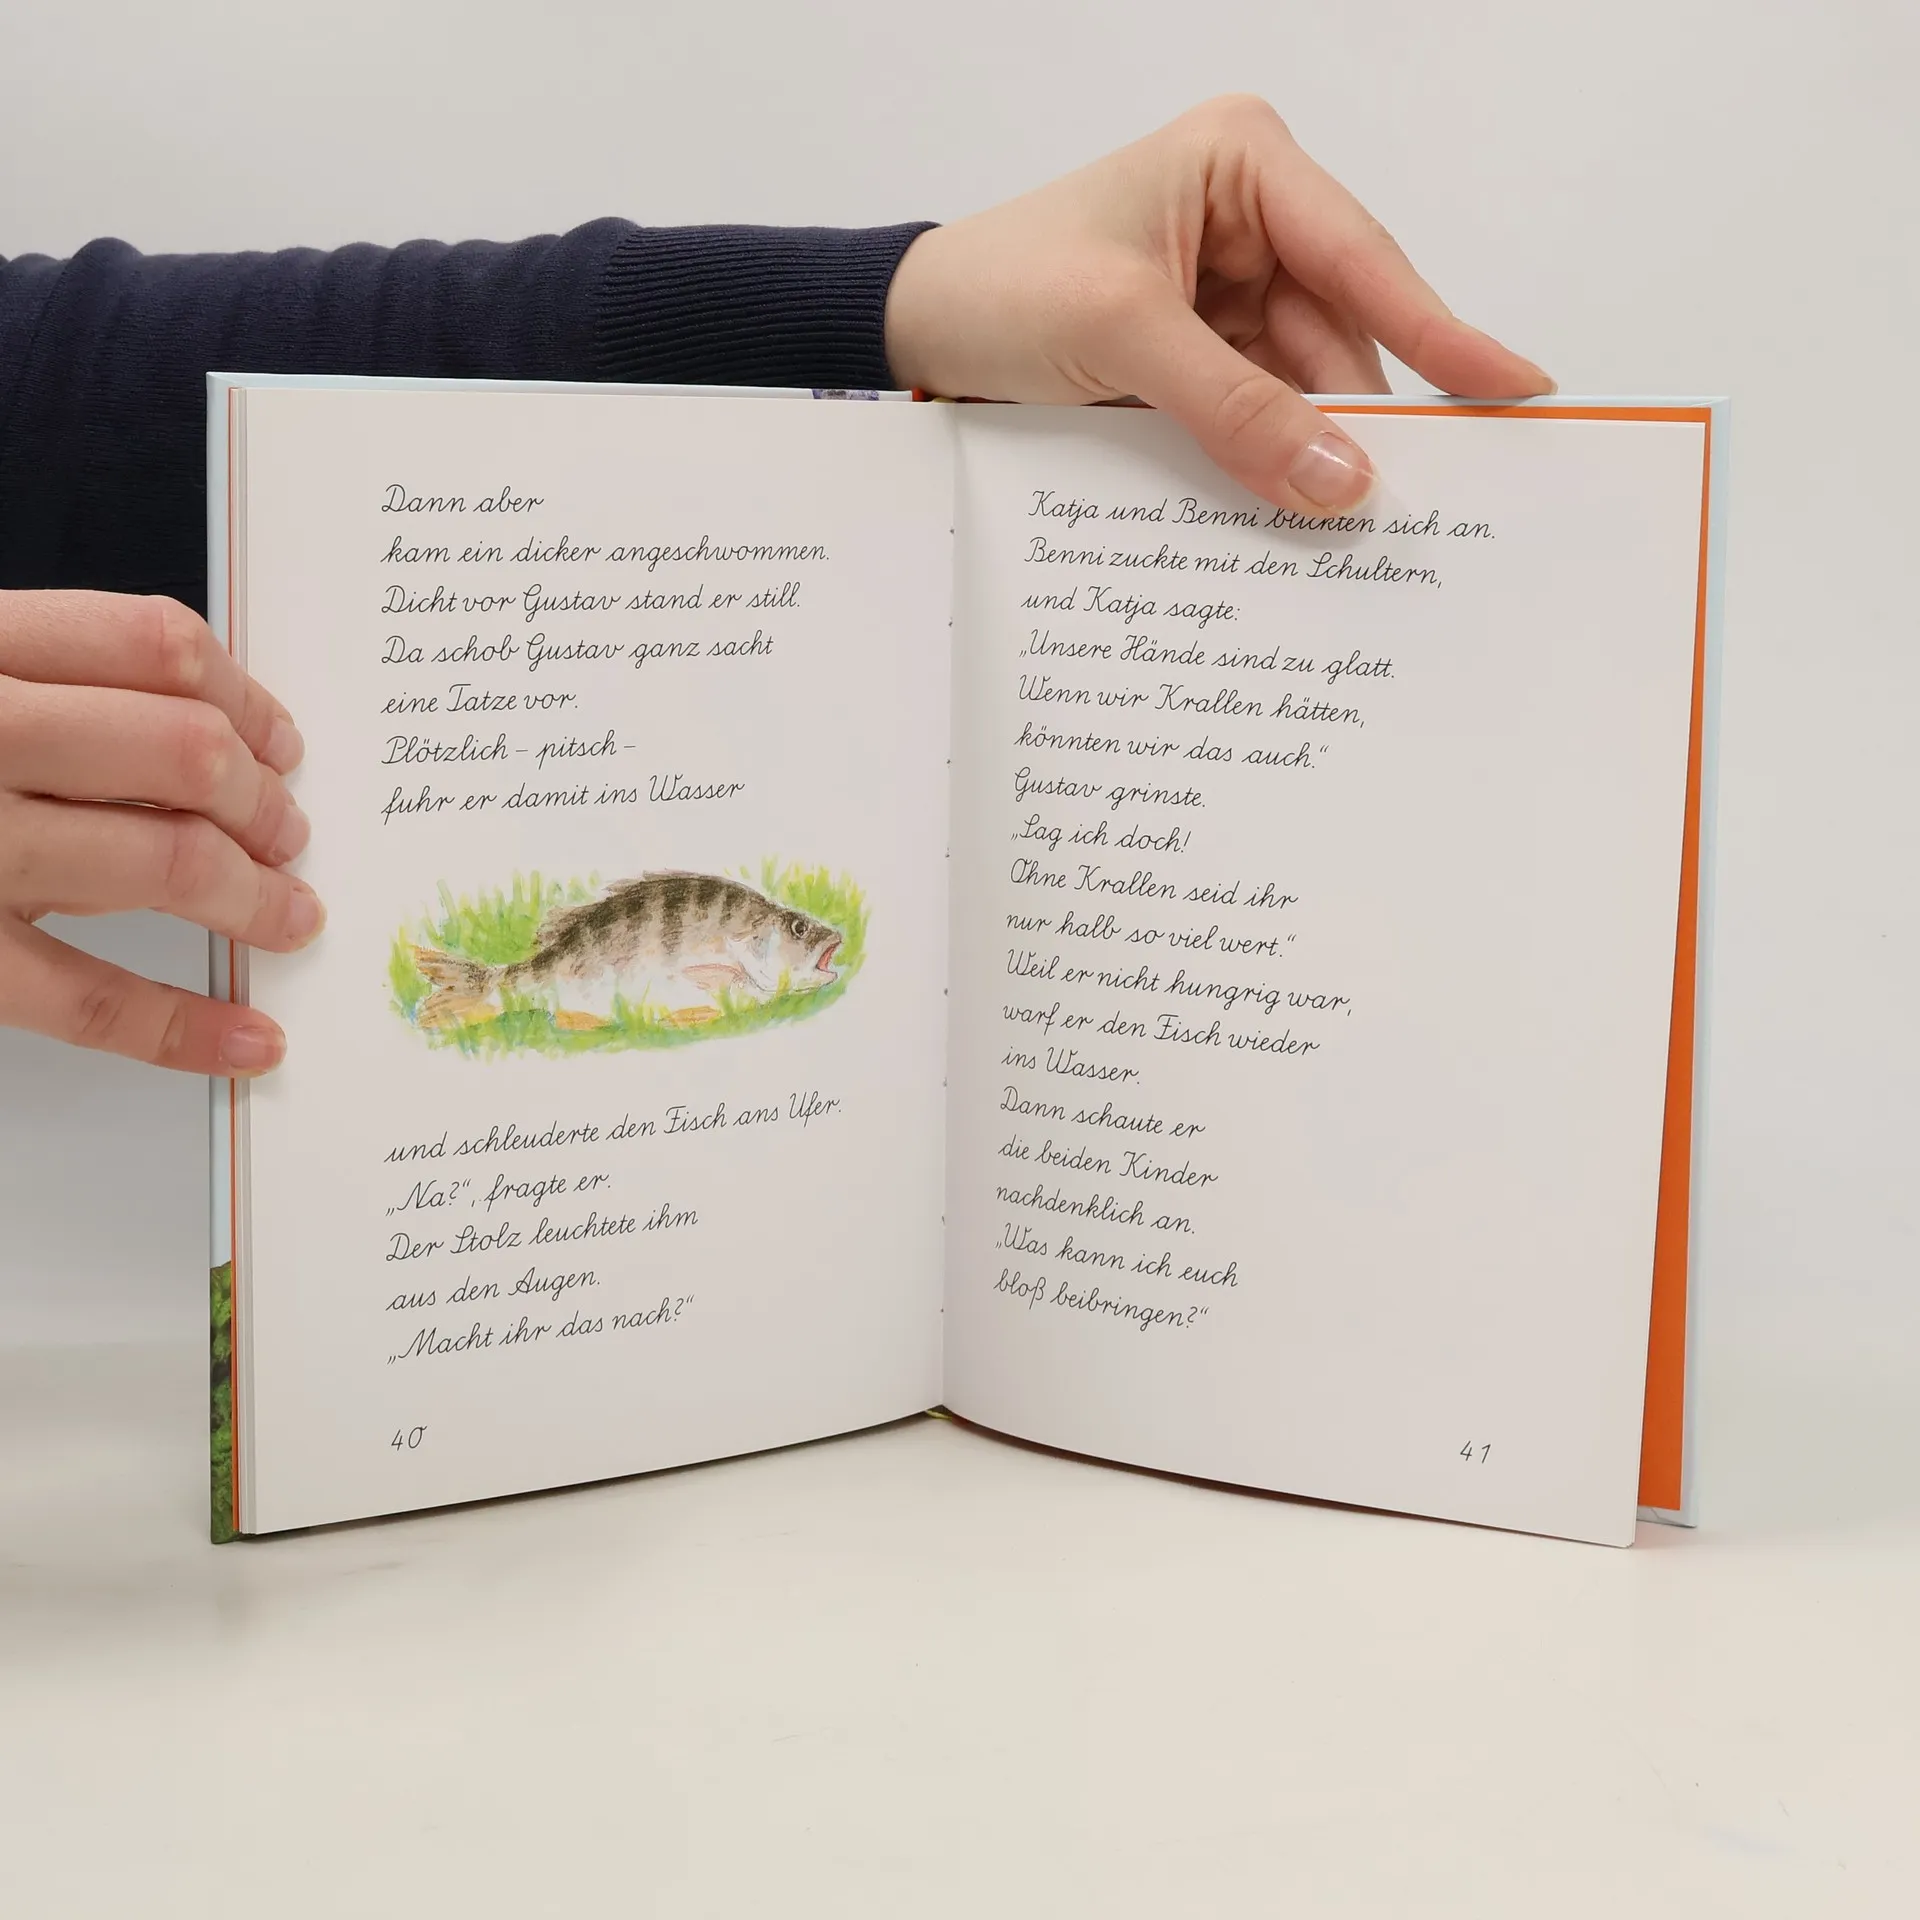 Dann aber
kam ein dicker angeschwommen.
Dicht vor Gustav stand er still.
Da schob Gustav ganz sacht
eine Tatze vor.
Plötzlich – pitsch –
fuhr er damit ins Wasser
und schleuderte den Fisch ans Ufer.
„Na?“, fragte er.
Der Stolz leuchtete ihm
aus den Augen.
„Macht ihr das nach?“
40
Katja und Benni blickten sich an.
Benni zuckte mit den Schultern,
und Katja sagte:
„Unsere Hände sind zu glatt.
Wenn wir Krallen hätten,
könnten wir das auch.“
Gustav grinste.
„Sag ich doch!
Ohne Krallen seid ihr
nur halb so viel wert.“
Weil er nicht hungrig war,
warf er den Fisch wieder
ins Wasser.
Dann schaute er
die beiden Kinder
nachdenklich an.
„Was kann ich euch
bloß beibringen?“
41